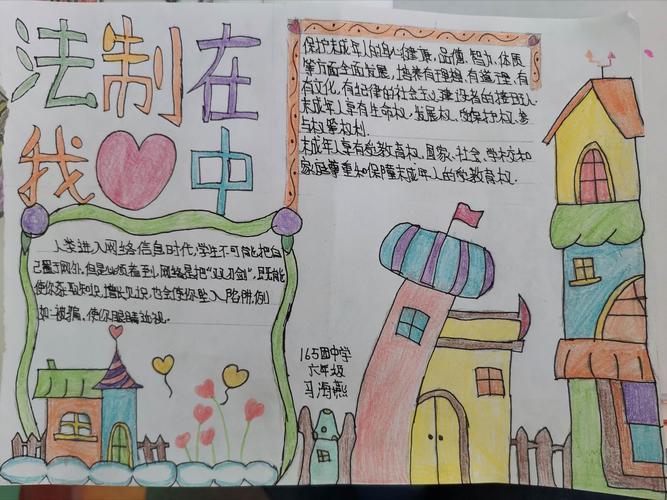 法制在
我中
保护未成年人的身心健康,品德,智力,体质
等方面全面发展,培养有理想,有道理,有
有文化,有纪律的社会主义建设者的接班人
未成年人享有生命权,发展权,受保护权,参
与权等权利
未成年人享有受教育权,国家,社会,学校和
家庭尊重和保障未成年人的受教育权.
人类进入网络信息时代,学生不可能把自
己置于网外,但是必须看到,网络是把“双刃剑”,既能
使你获取知识,增长见识,也会使你坠入陷阱,例
如:被骗,使你眼睛近视.
165团中学
六年级
马海燕